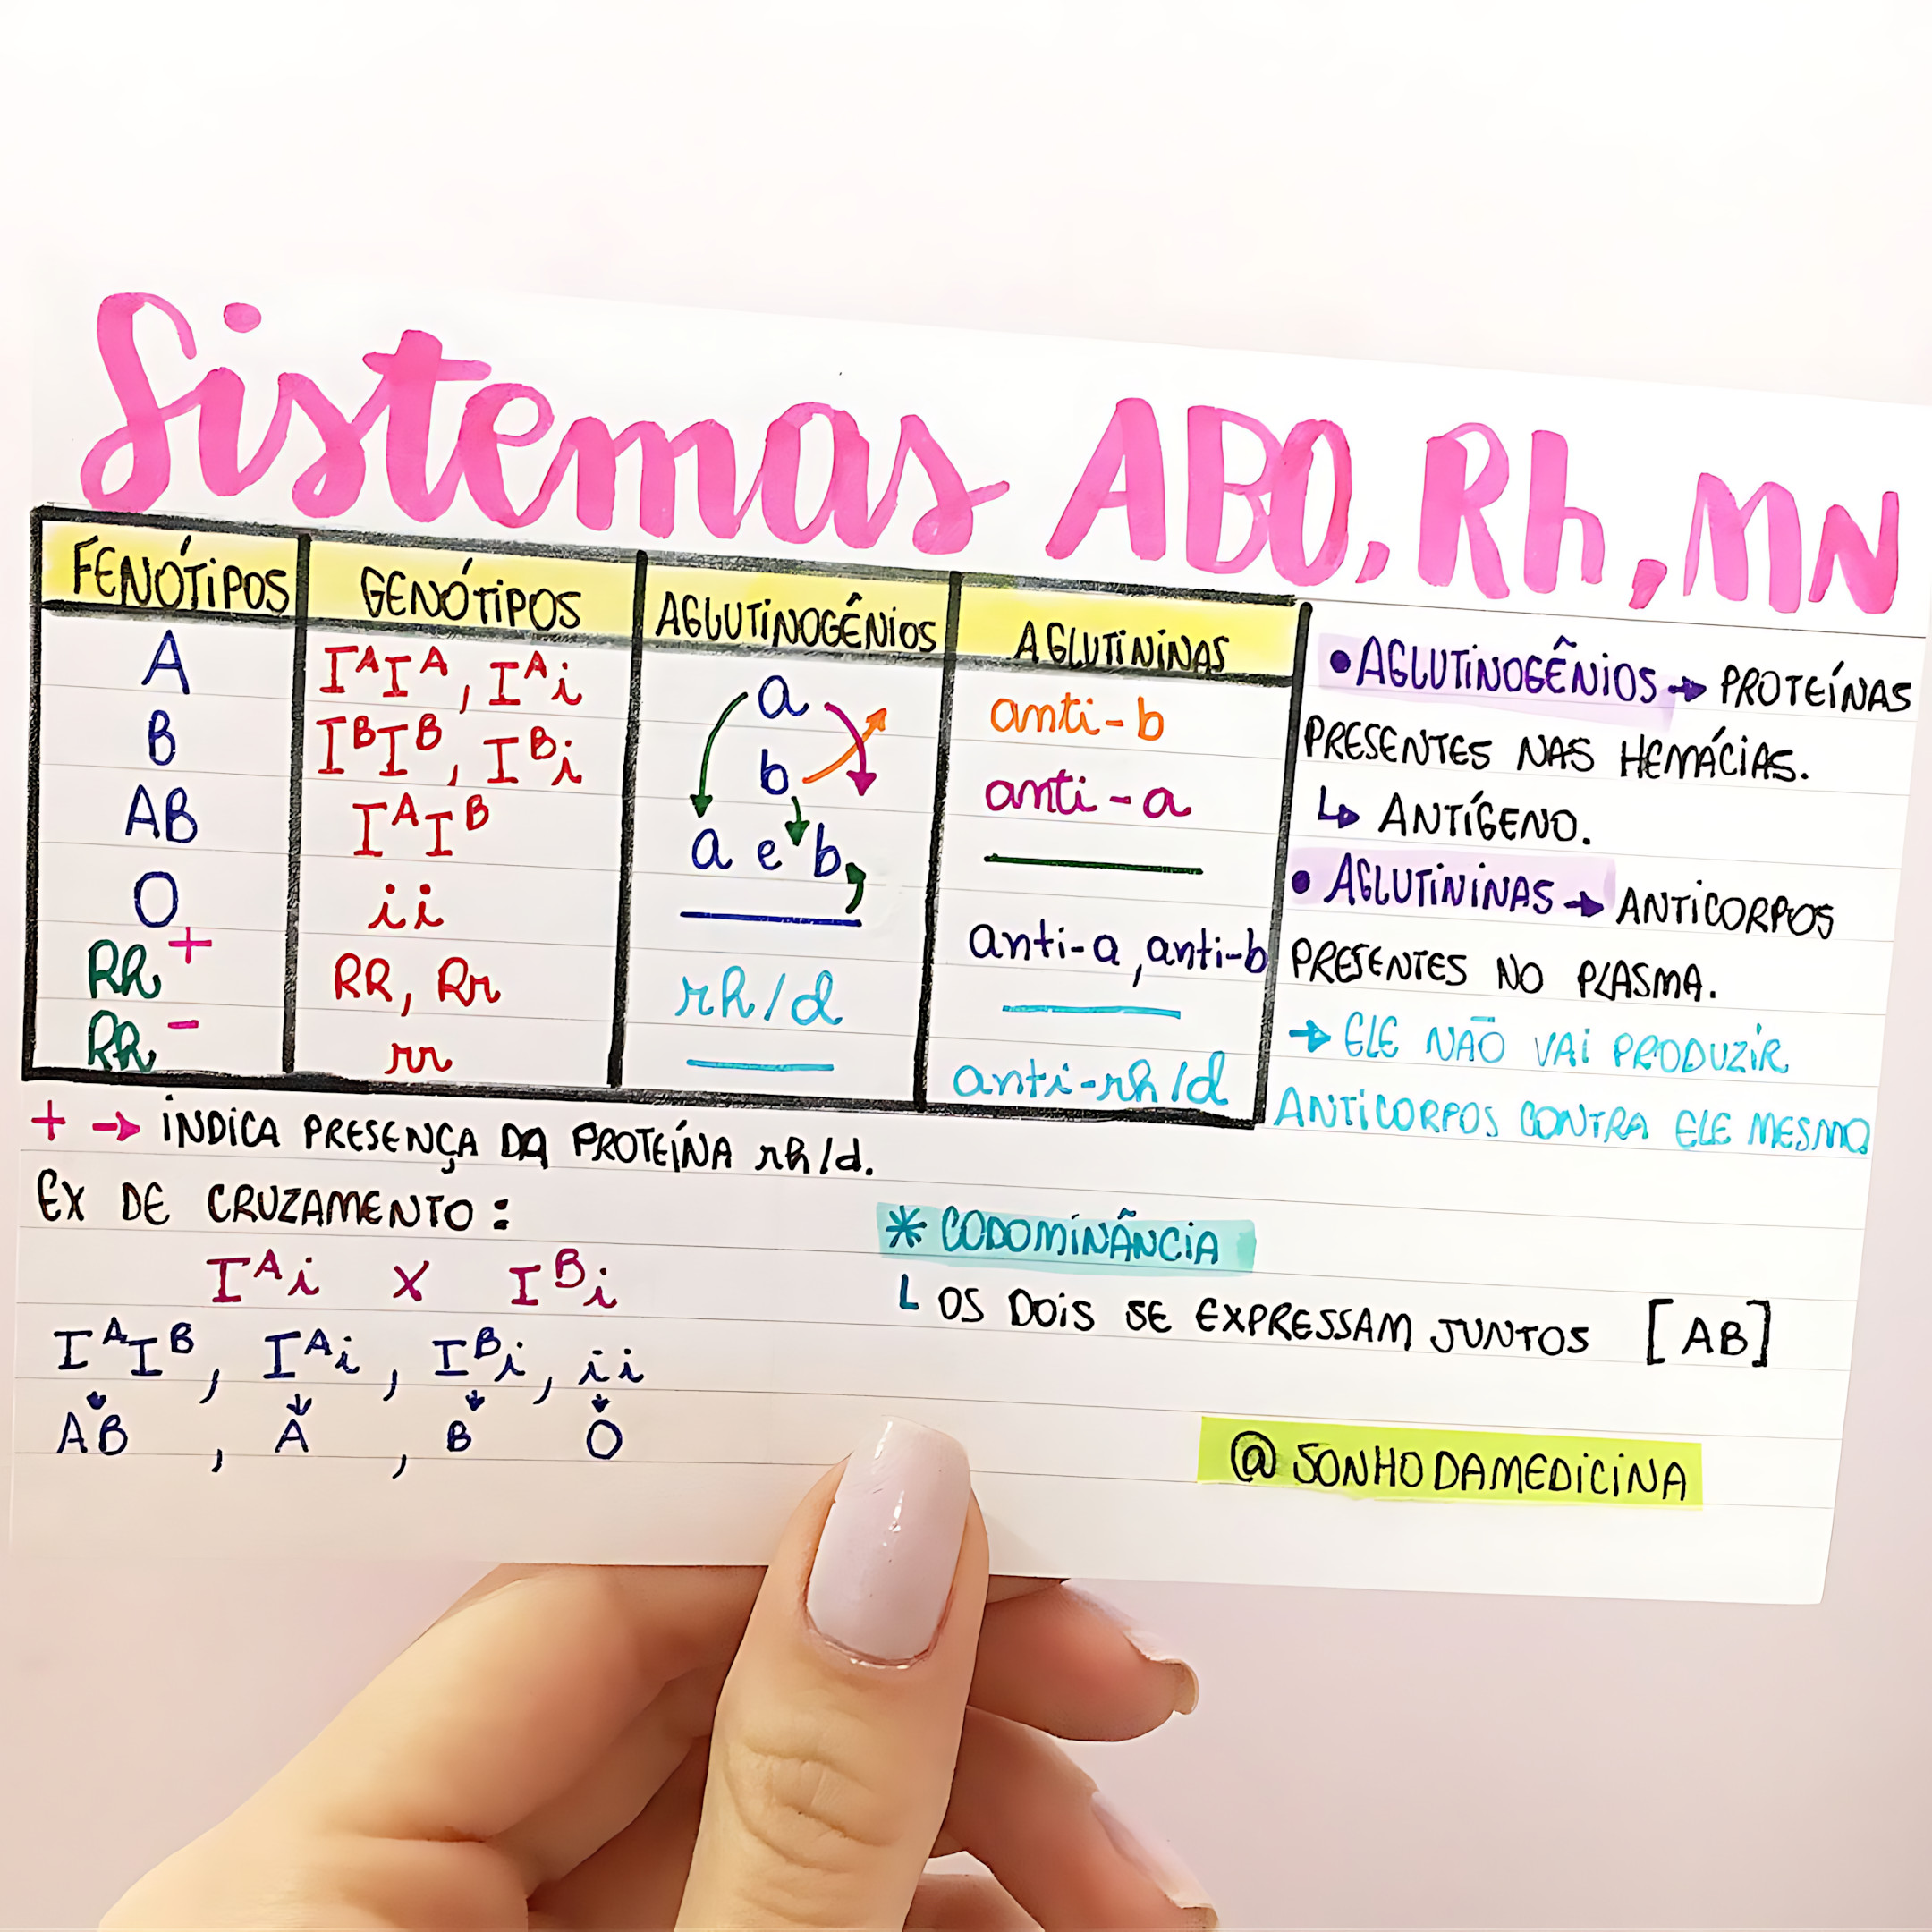 Sistemas ABO, Rh, MN
FENÓTIPOS GENÓTIPOS AGLUTINOGÊNIOS AGLUTININAS
A IᴬIᴬ, Iᴬi a anti-b
B IᴮIᴮ, Iᴮi b anti-a
AB IᴬIᴮ a e b —
O ii — anti-a, anti-b
Rh⁺ RR, Rr rh/d —
Rh⁻ rr — anti-rh/d
• AGLUTINOGÊNIOS → PROTEÍNAS
PRESENTES NAS HEMÁCIAS.
↳ ANTÍGENO.
• AGLUTININAS → ANTICORPOS
PRESENTES NO PLASMA.
→ ELE NÃO VAI PRODUZIR
ANTICORPOS CONTRA ELE MESMO
+ → INDICA PRESENÇA DA PROTEÍNA rh/d.
EX DE CRUZAMENTO:
Iᴬi X Iᴮi
IᴬIᴮ, Iᴬi, Iᴮi, ii
AB, A, B O
* CODOMINÂNCIA
└ OS DOIS SE EXPRESSAM JUNTOS [AB]
@SONHODAMEDICINA